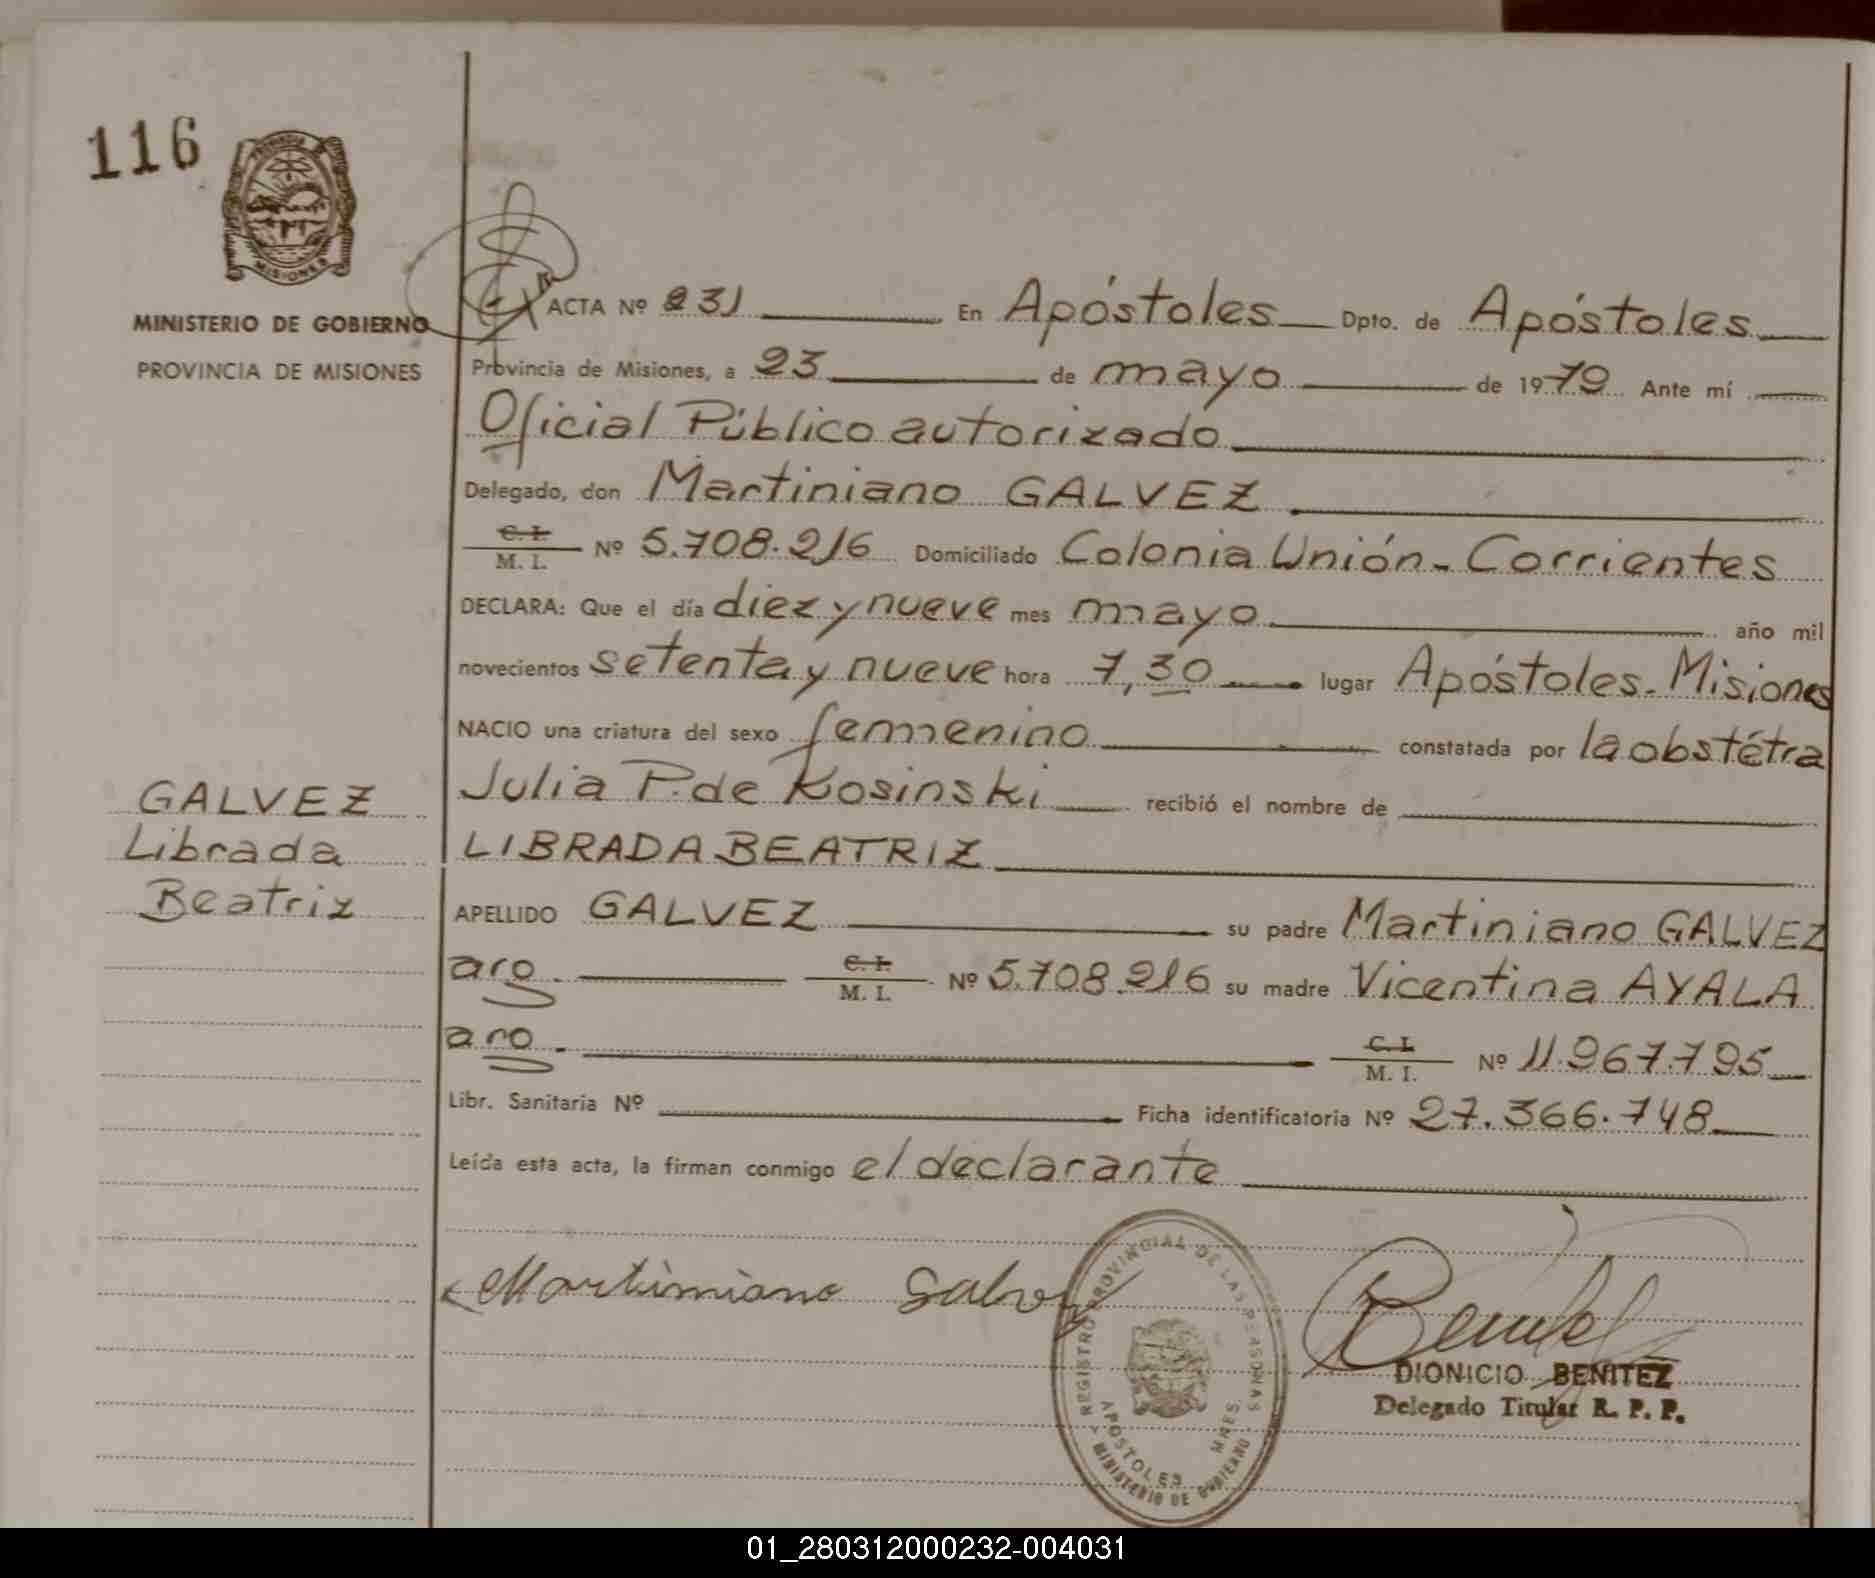 116
PROVINCIA
MISIONES
MINISTERIO DE GOBIERNO
PROVINCIA DE MISIONES
ACTA Nº 231 En Apóstoles Dpto. de Apóstoles
Provincia de Misiones, a 23 de mayo de 1979 Ante mí
Oficial Público autorizado
Delegado, don Martiniano GALVEZ
C. I.
M. I. Nº 5.708.216 Domiciliado Colonia Unión - Corrientes
DECLARA: Que el día diez y nueve mes mayo año mil
novecientos setenta y nueve hora 7,30 lugar Apóstoles - Misiones
NACIO una criatura del sexo femenino constatada por la obstétra
Julia P. de Kosinski recibió el nombre de
LIBRADA BEATRIZ
GALVEZ
Librada
Beatriz
APELLIDO GALVEZ su padre Martiniano GALVEZ
aro. C. I.
M. I. Nº 5.708.216 su madre Vicentina AYALA
aro. C. I.
M. I. Nº 11.967.795
Libr. Sanitaria Nº Ficha identificatoria Nº 27.366.748
Leída esta acta, la firman conmigo el declarante
Martimiano Galvez
REGISTRO PROVINCIAL DE LAS PERSONAS
APOSTOLES MNES.
MINISTERIO DE GOBIERNO
DIONICIO BENITEZ
Delegado Titular R. P. P.
01_280312000232-004031